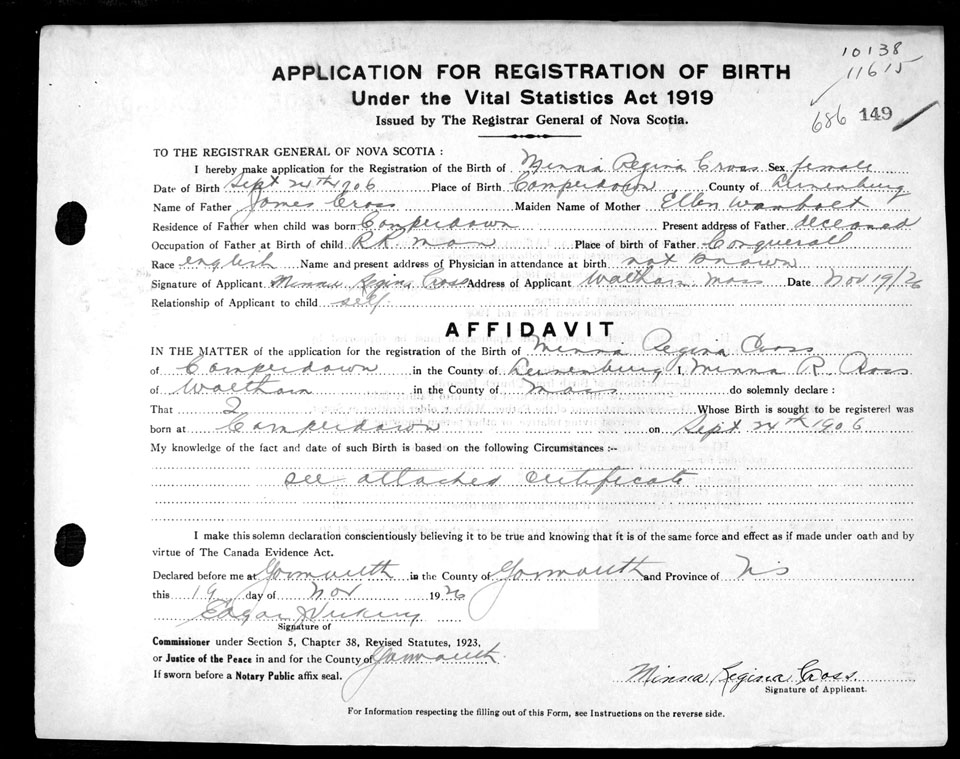 10138
11615
686 149
APPLICATION FOR REGISTRATION OF BIRTH
Under the Vital Statistics Act 1919
Issued by The Registrar General of Nova Scotia.
TO THE REGISTRAR GENERAL OF NOVA SCOTIA :
I hereby make application for the Registration of the Birth of Minna Regina Cross Sex female
Date of Birth Sept 24th 1906 Place of Birth Camperdown County of Lunenburg
Name of Father James Cross Maiden Name of Mother Ellen Wambolt
Residence of Father when child was born Camperdown Present address of Father deceased
Occupation of Father at Birth of child RR man Place of birth of Father Conquerall
Race english Name and present address of Physician in attendance at birth not known
Signature of Applicant Minna Regina Cross Address of Applicant Waltham Mass Date Nov 19/26
Relationship of Applicant to child self
AFFIDAVIT
IN THE MATTER of the application for the registration of the Birth of Minna Regina Cross
of Camperdown in the County of Lunenburg I, Minna R. Cross
of Waltham in the County of Mass do solemnly declare :
That I Whose Birth is sought to be registered was
born at Camperdown on Sept 24th 1906
My knowledge of the fact and date of such Birth is based on the following Circumstances :--
see attached certificate
I make this solemn declaration conscientiously believing it to be true and knowing that it is of the same force and effect as if made under oath and by
virtue of The Canada Evidence Act.
Declared before me at Yarmouth in the County of Yarmouth and Province of NS
this 19 day of Nov 1926
Edgar
Signature of
Commissioner under Section 5, Chapter 38, Revised Statutes, 1923,
or Justice of the Peace in and for the County of Yarmouth
If sworn before a Notary Public affix seal.
Minna Regina Cross.
Signature of Applicant.
For Information respecting the filling out of this Form, see Instructions on the reverse side.